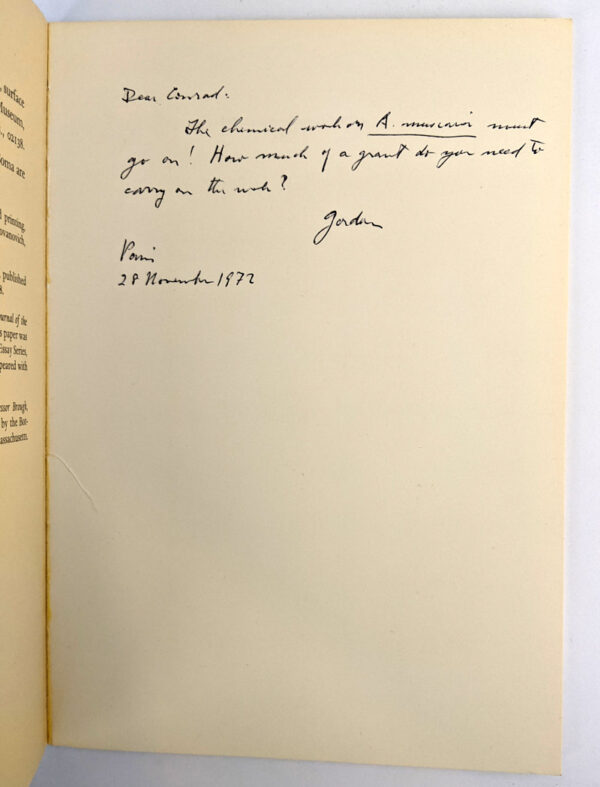 surface
Museum,
., 02138.
oma are
printing,
ovanovich,
published
8.
ournal of the
s paper was
Essay Series,
peared with
ssor Brough,
by the Bot-
assachusetts.
Dear Conrad:
The chemical work on A. muscaria must
go on! How much of a grant do you need to
carry on the work?
Gordon
Paris
28 November 1972